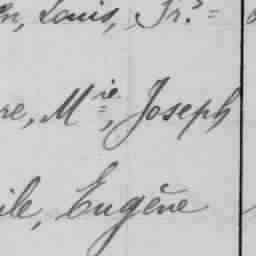 n, Louis, Frs
re, Mie, Joseph
ile, Eugène